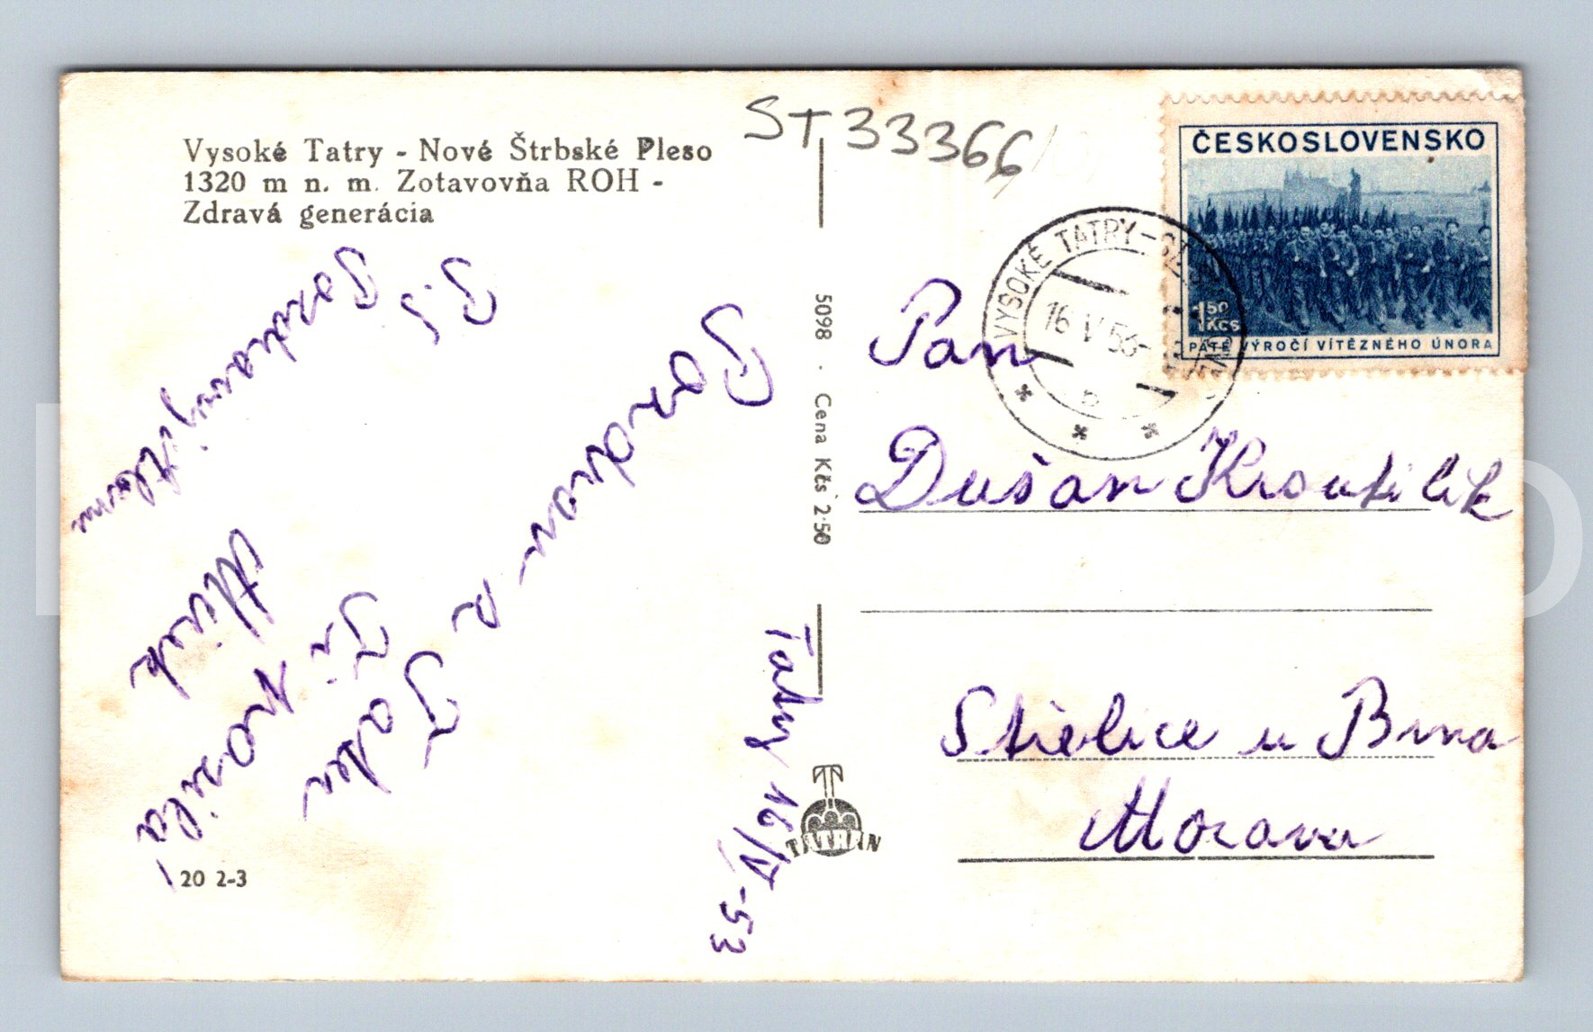 Vysoké Tatry - Nové Štrbské Pleso
1320 m n. m. Zotavovňa ROH -
Zdravá generácia
ST 33366
ČESKOSLOVENSKO
1 50 Kčs
PÁTÉ VÝROČÍ VÍTĚZNÉHO ÚNORA
VYSOKÉ TATRY -
16 V 53
5098 · Cena Kčs 2·50
Pozdrav z
Tater
P.S
Pozdravuj
Tatry 16/V-53
TATRAN
20 2-3
Pan
Dušan Kroutilík
Střelice u Brna
Morava